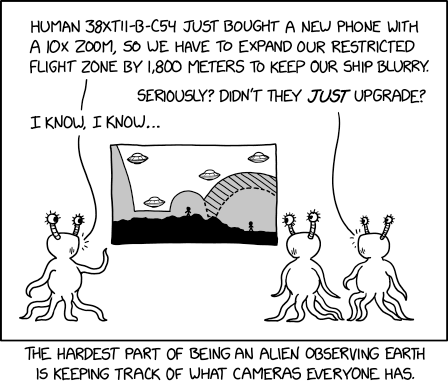 HUMAN 38XT11-B-C54 JUST BOUGHT A NEW PHONE WITH
A 10X ZOOM, SO WE HAVE TO EXPAND OUR RESTRICTED
FLIGHT ZONE BY 1,800 METERS TO KEEP OUR SHIP BLURRY.
SERIOUSLY? DIDN'T THEY JUST UPGRADE?
I KNOW, I KNOW...
THE HARDEST PART OF BEING AN ALIEN OBSERVING EARTH
IS KEEPING TRACK OF WHAT CAMERAS EVERYONE HAS.